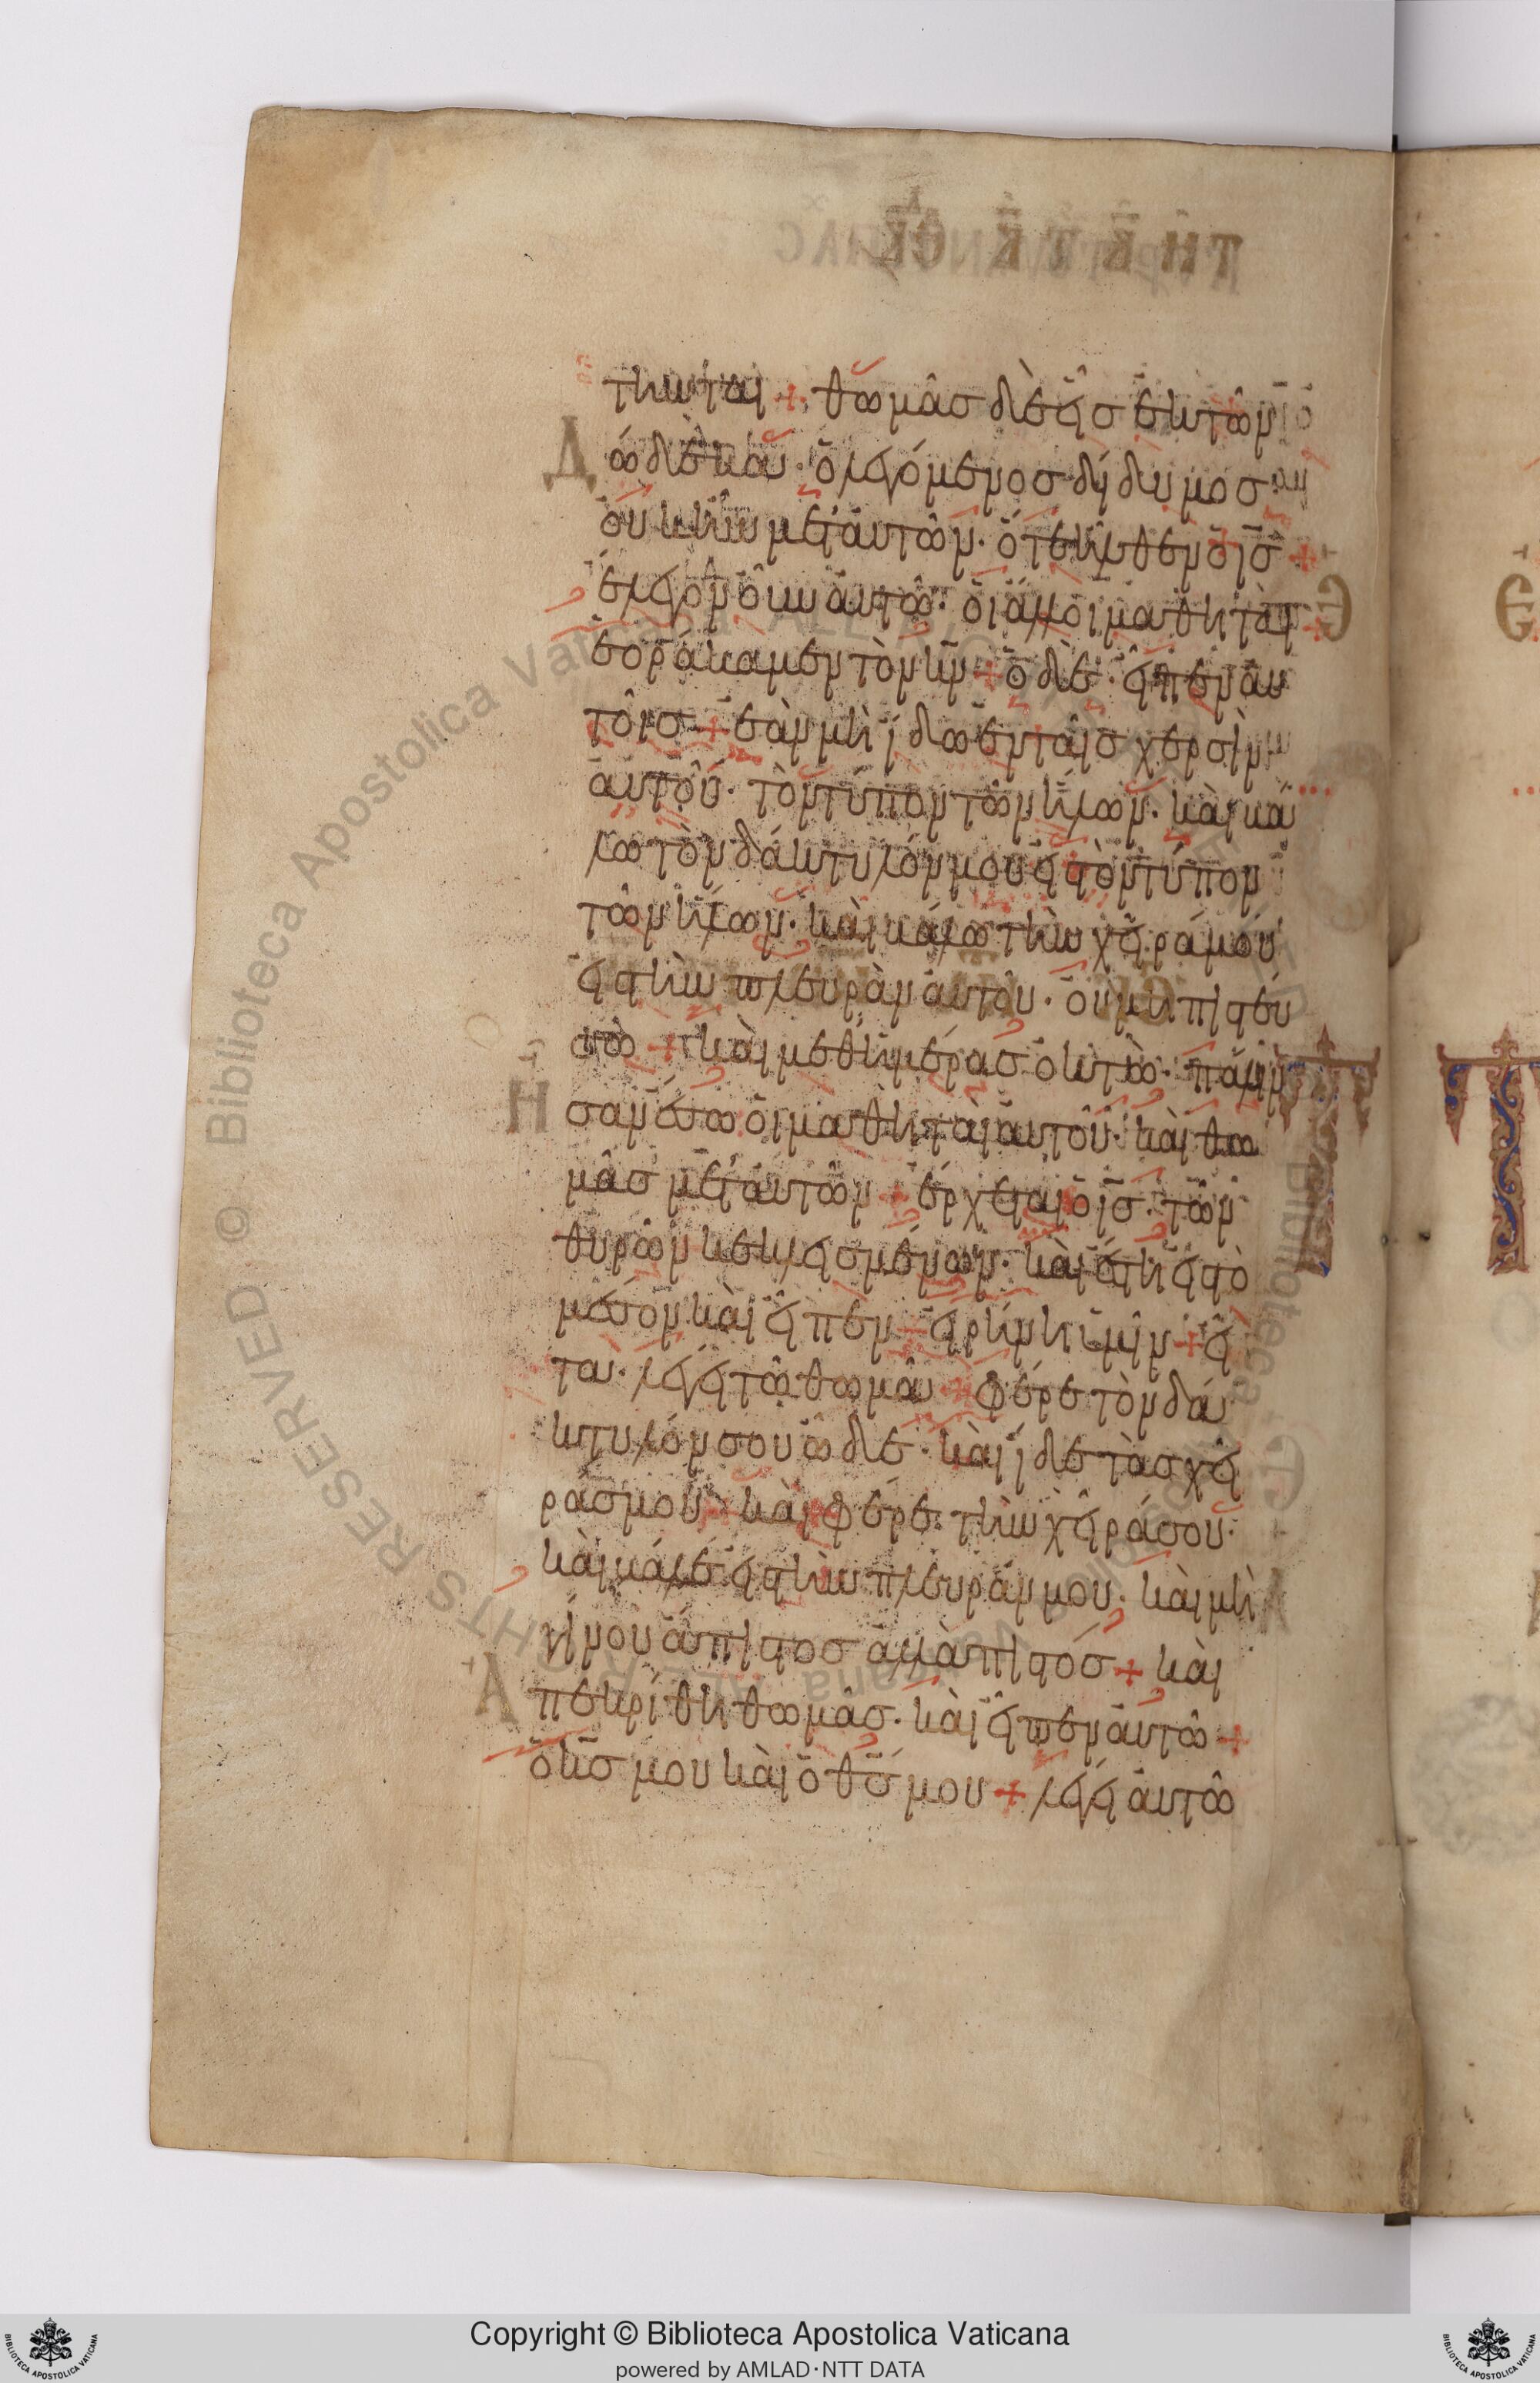 τηνται + θωμᾶσ δὲ εἷσ ἐκ τῶν
Δώδεκα· ὁ λεγόμενοσ δίδυμοσ·
οὐκ ἦν μετ' αὐτῶν· ὅτε ἦλθεν ὁ ισ +
ἔλεγον οὖν αὐτῶ· οἱ ἄλλοι μαθηταὶ +
ἑοράκαμεν τὸν κν + ὁ δὲ· εἶπεν αὐ
τοῖσ + ἐὰν μὴ ἴδω ἐν ταῖσ χερσὶν
αὐτοῦ· τὸν τύπον τῶν ἥλων· καὶ βά
λω τὸν δάκτυλόν μου εἰσ τὸν τύπον
τῶν ἥλων· καὶ βάλω τὴν χεῖρά μου
εἰσ τὴν πλευρὰν αὐτοῦ· οὐ μὴ πιστεύ
σω + καὶ μεθ' ἡμέρασ ὀκτὼ· πάλιν
Ησαν ἔσω οἱ μαθηταὶ αὐτοῦ· καὶ θω
μᾶσ μετ' αὐτῶν + ἔρχεται ὁ ισ· τῶν
θυρῶν κεκλεισμένων· καὶ ἔστη εἰσ τὸ
μέσον καὶ εἶπεν + εἰρήνη ὑμῖν + εἶ
τα· λέγει τῶ θωμᾶ + φέρε τὸν δά
κτυλόν σου ὧδε· καὶ ἴδε τὰσ χεῖ
ράσ μου· καὶ φέρε· τὴν χεῖρά σου·
καὶ βάλε εἰσ τὴν πλευράν μου· καὶ μὴ
γίνου ἄπιστοσ ἀλλὰ πιστόσ + καὶ
Απεκρίθη θωμᾶσ· καὶ εἶπεν αὐτῶ +
ὁ κσ μου καὶ ὁ θσ μου + λέγει αὐτῶ
© Biblioteca Apostolica Vaticana ALL RIGHTS RESERVED
Copyright © Biblioteca Apostolica Vaticana
powered by AMLAD·NTT DATA